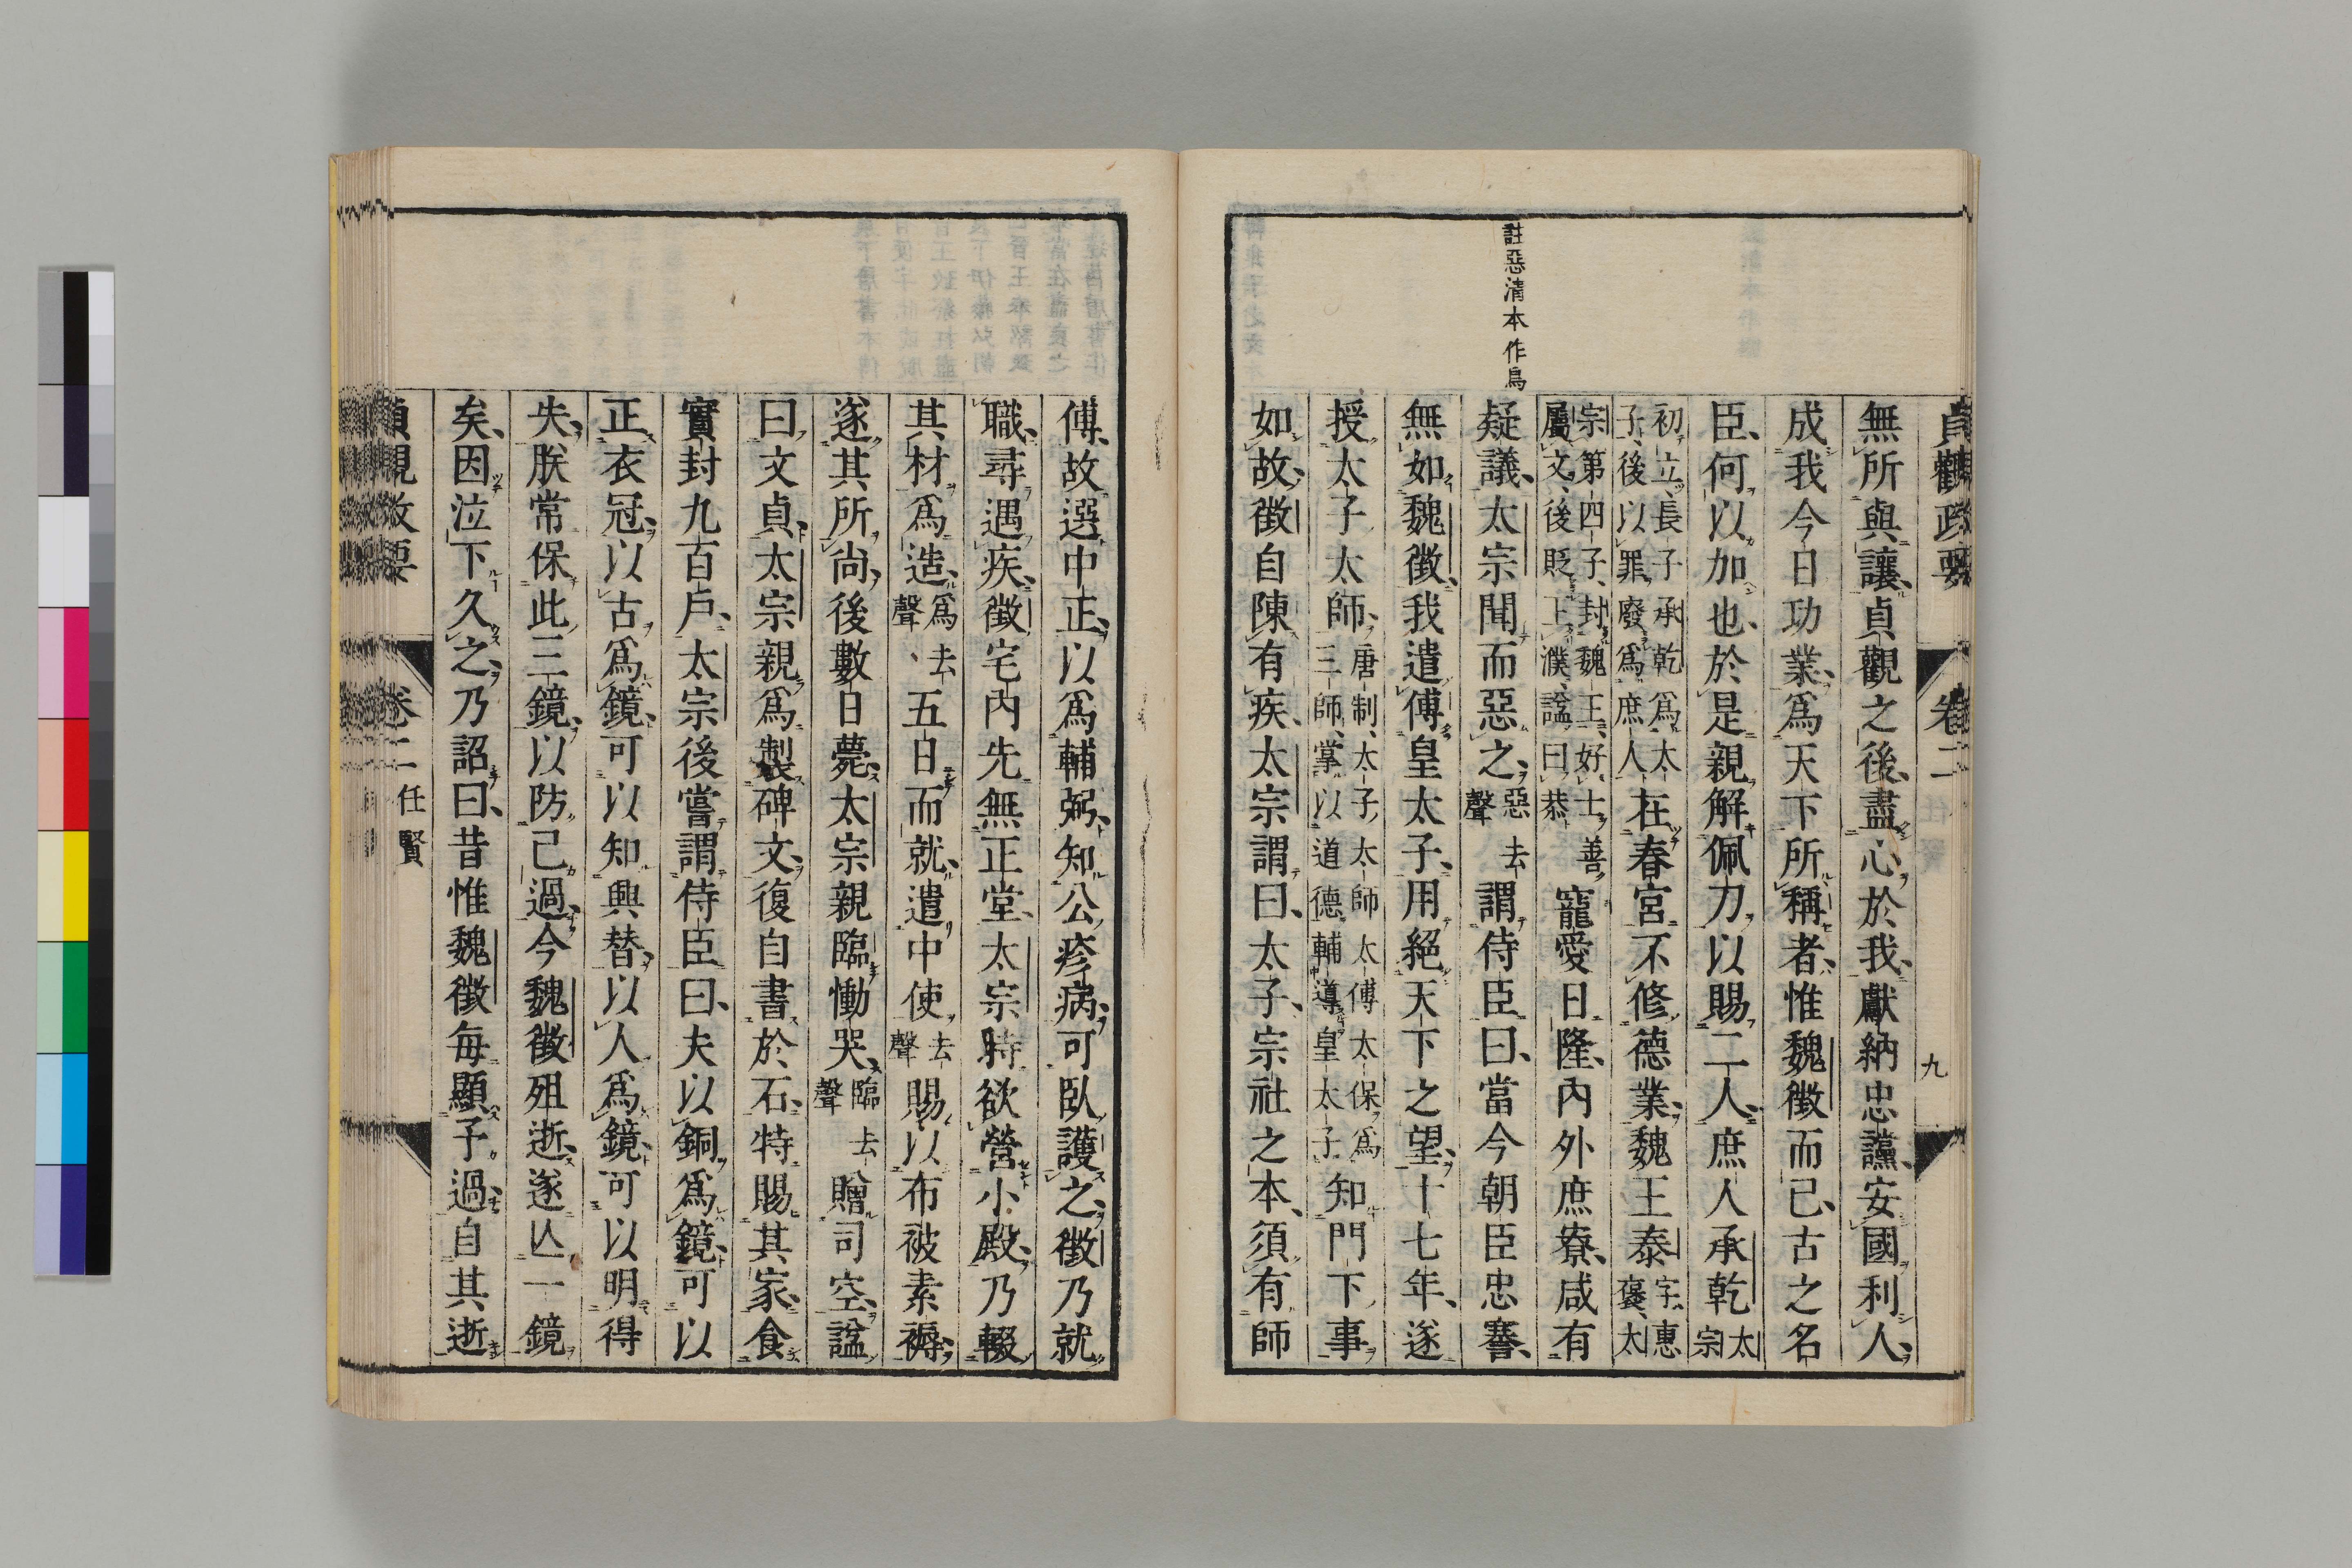 貞觀政要 卷二 九
無所與讓貞觀之後盡心於我獻納忠讜安國利人
成我今日功業爲天下所稱者惟魏徵而已古之名
臣何以加也於是親解佩刀以賜二人庶人承乾太宗
初立長子承乾爲太子後以罪廢爲庶人在春宮不修德業魏王泰字惠褒太
宗第四子封魏王好士善屬文後貶王濮諡曰恭寵愛日隆內外庶寮咸有
疑議太宗聞而惡之惡去聲謂侍臣曰當今朝臣忠謇
無如魏徵我遣傅皇太子用絕天下之望十七年遂
授太子太師唐制太子太師太傅太保爲三師掌以道德輔導皇太子知門下事
如故徵自陳有疾太宗謂曰太子宗社之本須有師
註惡淸本作烏
傅故選中正以爲輔弼知公疹病可臥護之徵乃就
職尋遇疾徵宅內先無正堂太宗時欲營小殿乃輟
其材爲造爲去聲五日而就遣中使去聲賜以布被素褥
遂其所尙後數日薨太宗親臨慟哭臨去聲贈司空諡
曰文貞太宗親爲製碑文復自書於石特賜其家食
實封九百戶太宗後嘗謂侍臣曰夫以銅爲鏡可以
正衣冠以古爲鏡可以知興替以人爲鏡可以明得
失朕常保此三鏡以防己過今魏徵殂逝遂亾一鏡
矣因泣下久之乃詔曰昔惟魏徵每顯予過自其逝
貞觀政要 卷二 任賢